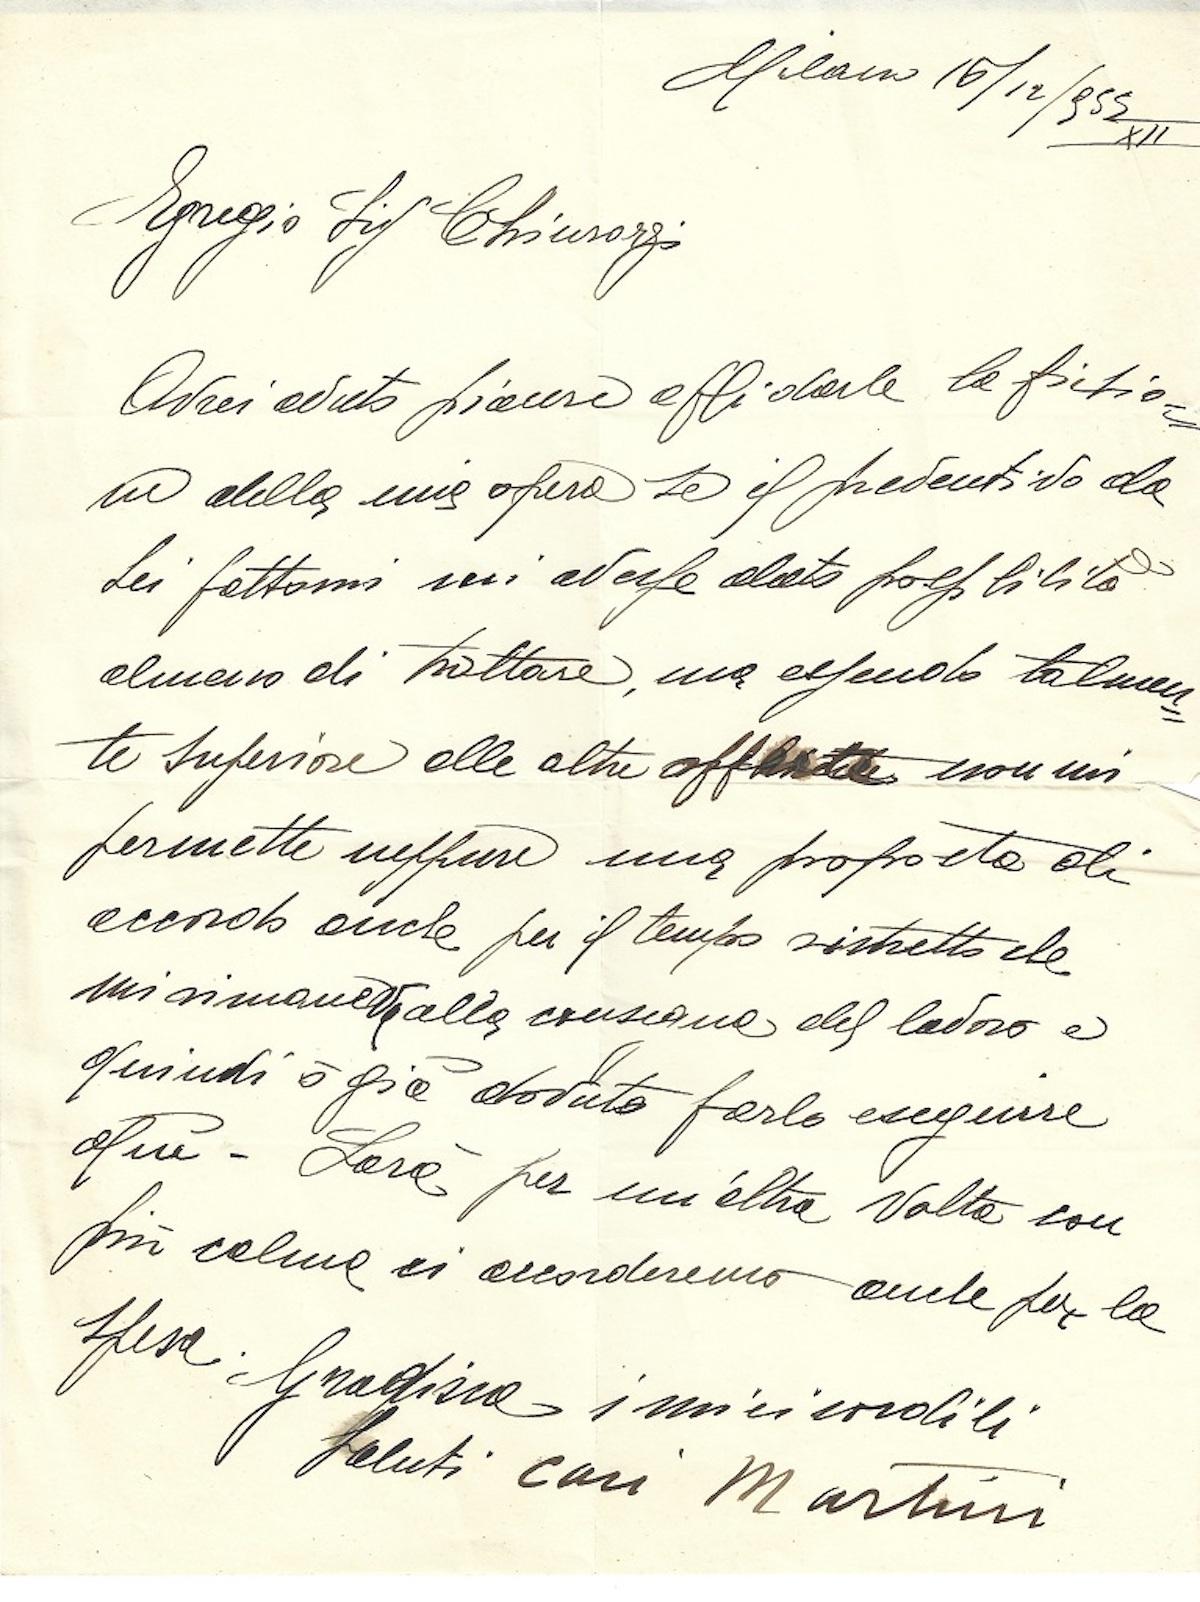 Milano 16/12/933
XII
Egregio Sig Chiurazzi
Avrei avuto piacere affidarle la fusio=
ne della mia opera se il preventivo da
Lei fattomi mi avesse dato possibilità
almeno di trattare, ma essendo talmen=
te superiore alle altre offerte non mi
permette neppure una proposta di
accordo anche per il tempo ristretto che
mi rimane alla consegna del lavoro e
quindi ò già dovuto farlo eseguire
quì - Sarà per un'altra volta con
più calma ci accorderemo anche per la
spesa. Gradisca i miei cordili
saluti cari Martini